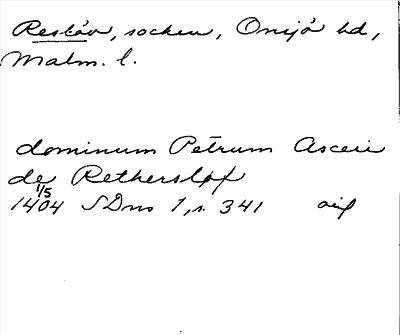 Reslöv, socken, Onsjö hd,
Malm. l.
dominum Petrum Ascerii
de Rethersløf
1/5
1404 SDns 1, s. 341